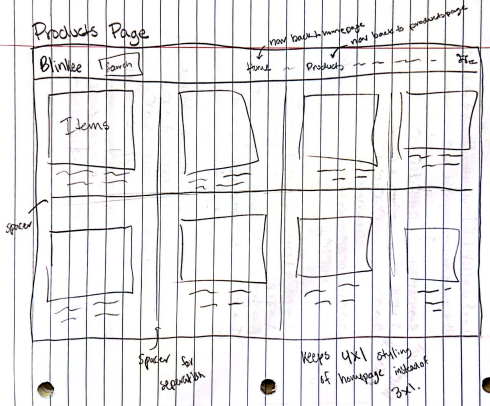 Products Page
nav back to homepage
nav back to products page
Blinkee
Search
Home
Products
Items
spacer
Spacer for
separation
Keeps 4x1 styling
of homepage instead of
3x1.